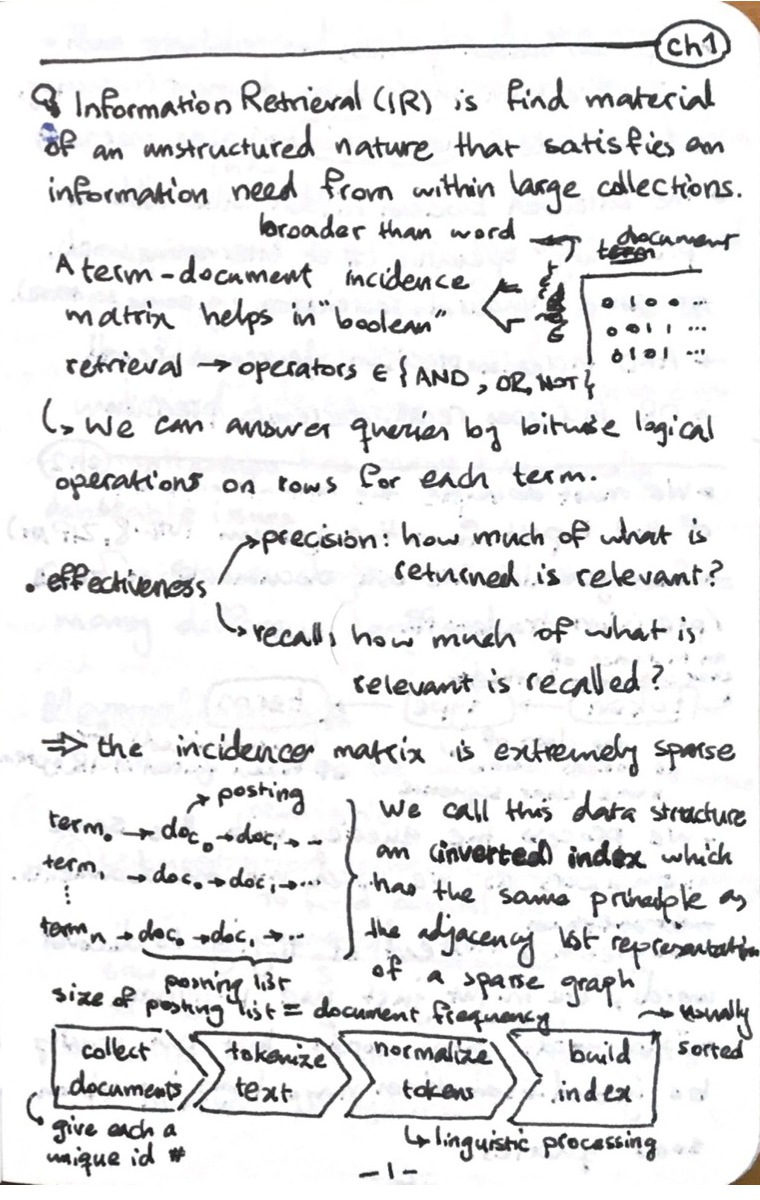 ch1
Information Retrieval (IR) is find material
of an unstructured nature that satisfies an
information need from within large collections.
broader than word
document
term
A term-document incidence
matrix helps in "boolean"
0 1 0 ...
0 0 1 1 ...
0 1 0 1 ...
retrieval → operators ∈ {AND, OR, NOT}
↳ We can answer queries by bitwise logical
operations on rows for each term.
• effectiveness
precision: how much of what is
returned is relevant?
recall: how much of what is
relevant is recalled?
⇒ the incidence matrix is extremely sparse
posting
term₀ → doc₀ → doc₁ → ...
term₁ → doc₀ → doc₁ → ...
⋮
termₙ → doc₀ → doc₁ → ...
posting list
We call this data structure
an (inverted) index which
has the same principle as
the adjacency list representation
of a sparse graph
size of posting list = document frequency
→ usually
sorted
collect
documents
tokenize
text
normalize
tokens
build
index
give each a
unique id #
↳ linguistic processing
-1-